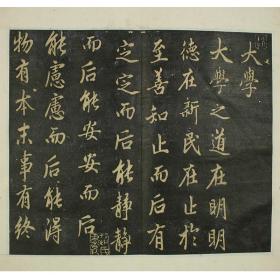 大學
大學之道在明明
德在新民在止於
至善知止而后有
定定而后能静静
而后能安安而后
能慮慮而后能得
物有本末事有終